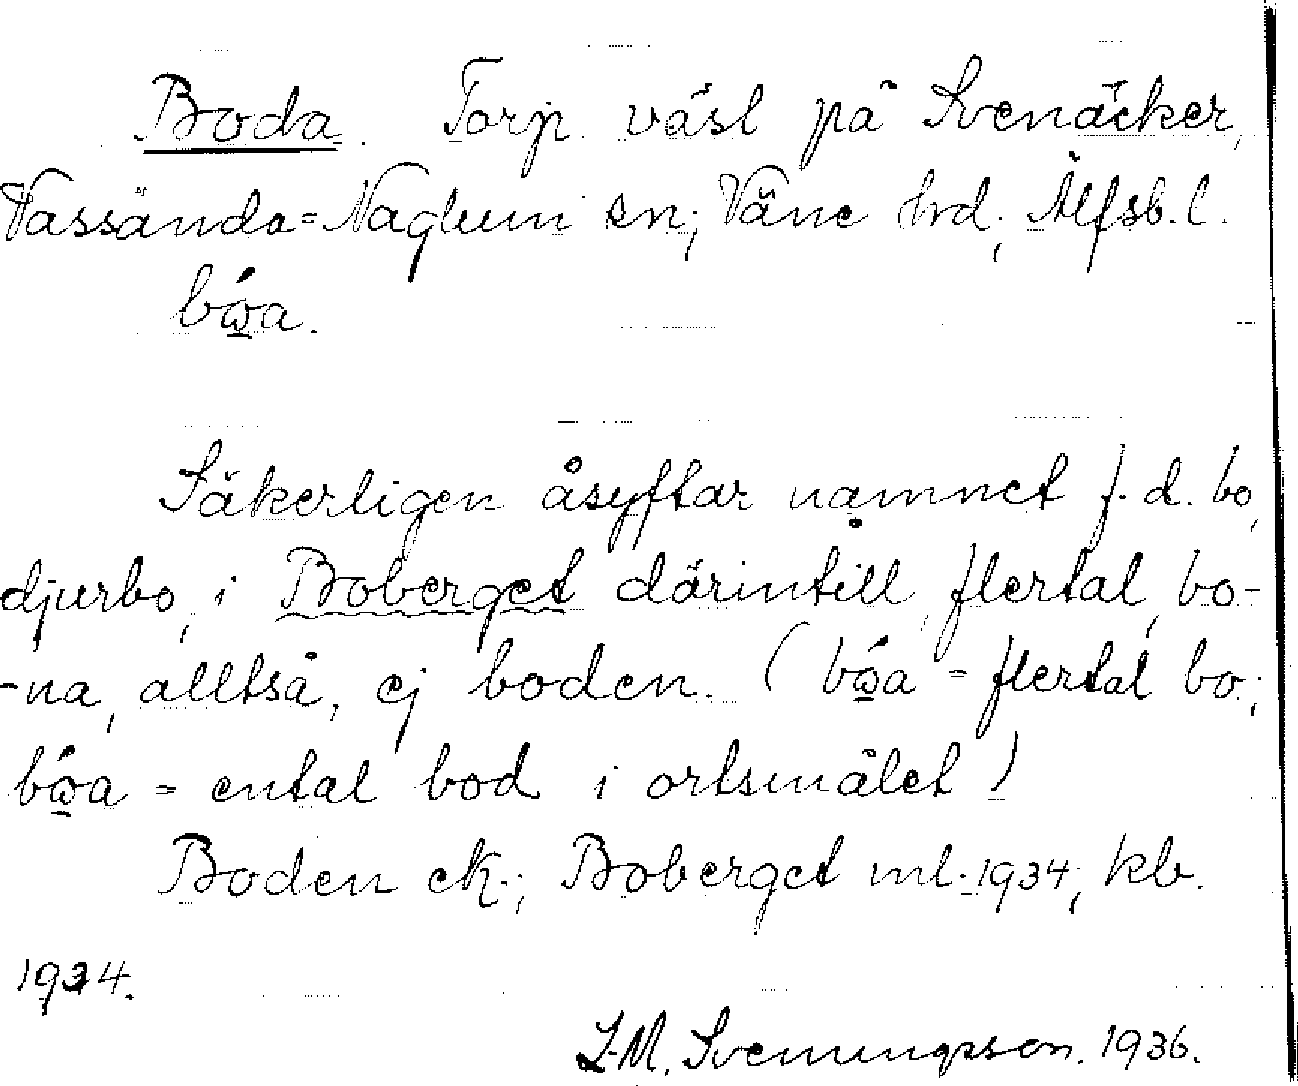 Boda. Torp väst på Svenåcker,
Vassända=Naglum sn; Väne hrd; Älfsb. l.
bώa.
Säkerligen åsyftar namnet f. d. bo,
djurbo, i Boberget därintill, flertal, bo-
-na, alltså, ej boden. (bώa = flertal bo;
bώa = ental bod i ortsmålet)
Boden ek.; Boberget ml. 1934; kb.
1934.
Svenungsson. 1936.